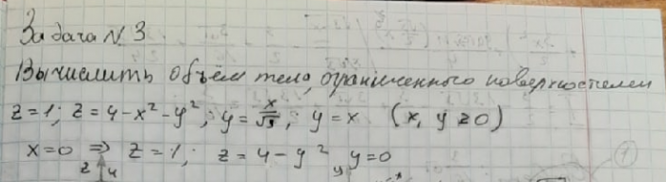 Задача № 3
Вычислить объём тела, ограниченного поверхностями
z=1; z=4-x²-y²; y=x/√3; y=x (x, y ≥0)
x=0 ⇒ z=1; z=4-y² y=0
z 4 y